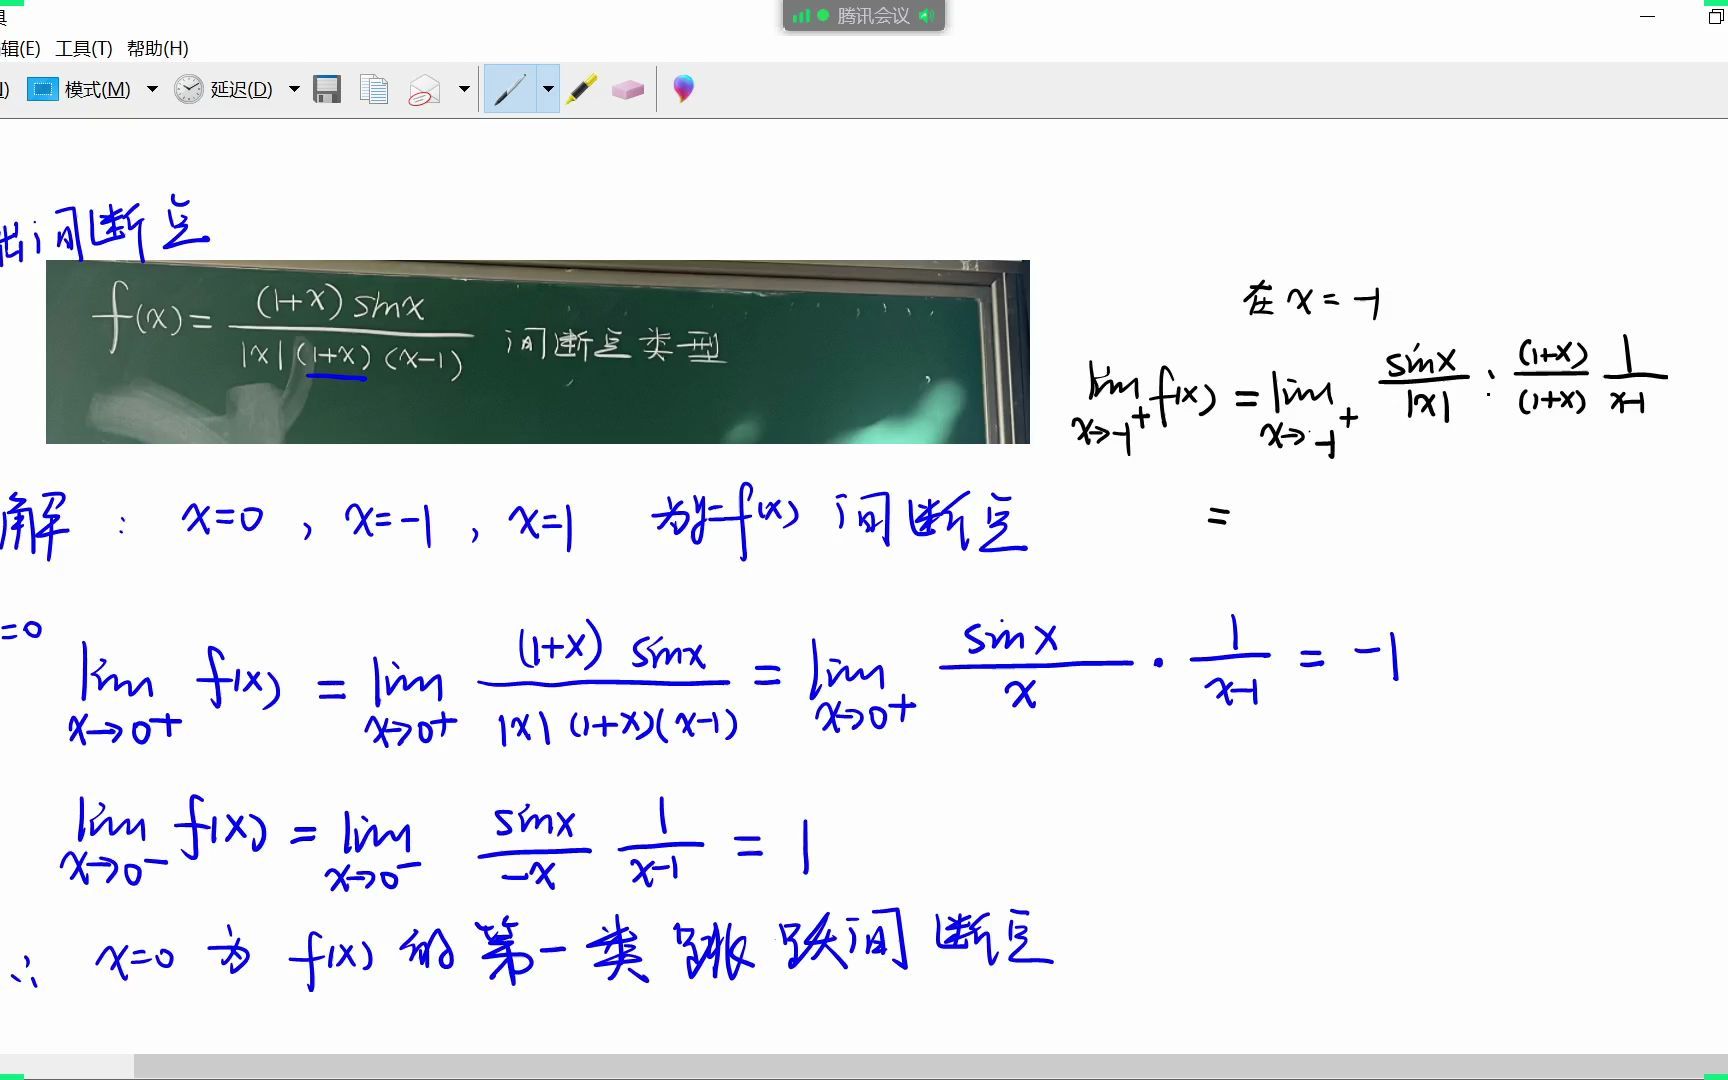 腾讯会议
具
辑(E) 工具(T) 帮助(H)
模式(M) 延迟(D)
出间断点
f(x)= (1+x) sinx / |x| (1+x) (x-1) 间断点类型
在 x = -1
lim x→-1⁺ f(x) = lim x→-1⁺ sinx/|x| · (1+x)/(1+x) 1/(x-1)
=
解 : x=0 , x=-1 , x=1 为y=f(x) 间断点
=0
lim x→0⁺ f(x) = lim x→0⁺ (1+x) sinx / |x| (1+x)(x-1) = lim x→0⁺ sinx/x · 1/(x-1) = -1
lim x→0⁻ f(x) = lim x→0⁻ sinx/-x 1/(x-1) = 1
∴ x=0 为 f(x) 的第一类跳跃间断点